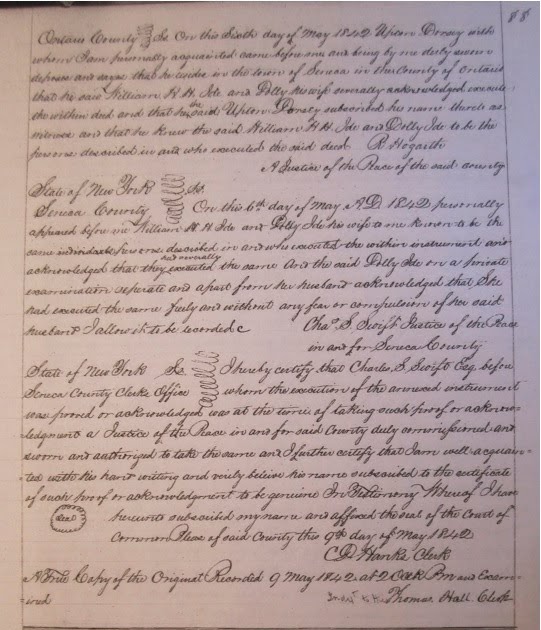 88
Ontario County Ss. On this Sixth day of May 1842 Upton Dorsey with
whom I am personally acquainted came before me and being by me duly sworn
deposes and says that he resides in the town of Seneca in the County of Ontario
that he said William H. H. Ide and Polly his wife severally acknowledged execute
the within deed and that he the said Upton Dorsey subscribed his name there as
witness and that he knew the said William H H Ide and Polly Ide to be the
persons described in and who executed the said deed R. Hogarth
A Justice of the Peace of the said county
State of New York Ss.
Seneca County On this 6th day of May A D 1842 personally
appeared before me William H. H Ide and Polly Ide his wife to me known to be the
same individuals persons described in and who executed the within instrument and
acknowledged that they and severally executed the same And the said Polly Ide on a private
examination seperate and apart from her husband acknowledged that She
had executed the same freely and without any fear or compulsion of her said
husband I allow it to be recorded Chas. S. Swift Justice of the Peace
in and for Seneca County
State of New York Ss I hereby certify that Charles S. Swift Esq. before
Seneca County Clerks Office whom the execution of the annexed instrument
was proved or acknowledged was at the time of taking such proof or acknow=
=ledgment a Justice of the Peace in and for said County duly commissioned and
sworn and authorized to take the same and I further certify that I am well acquain=
=ted with his hand writing and verily believe his name subscribed to the certificate
of such proof or acknowledgment to be genuine In Testimony Whereof I have
Seal hereunto subscribed my name and affixed the seal of the Court of
Common Pleas of said County this 9th day of May 1842
Hanks Clerk
A True Copy of the Original Recorded 9 May 1842 at 2 Ock Pm and Exam-
ined Thomas Hall Clerk